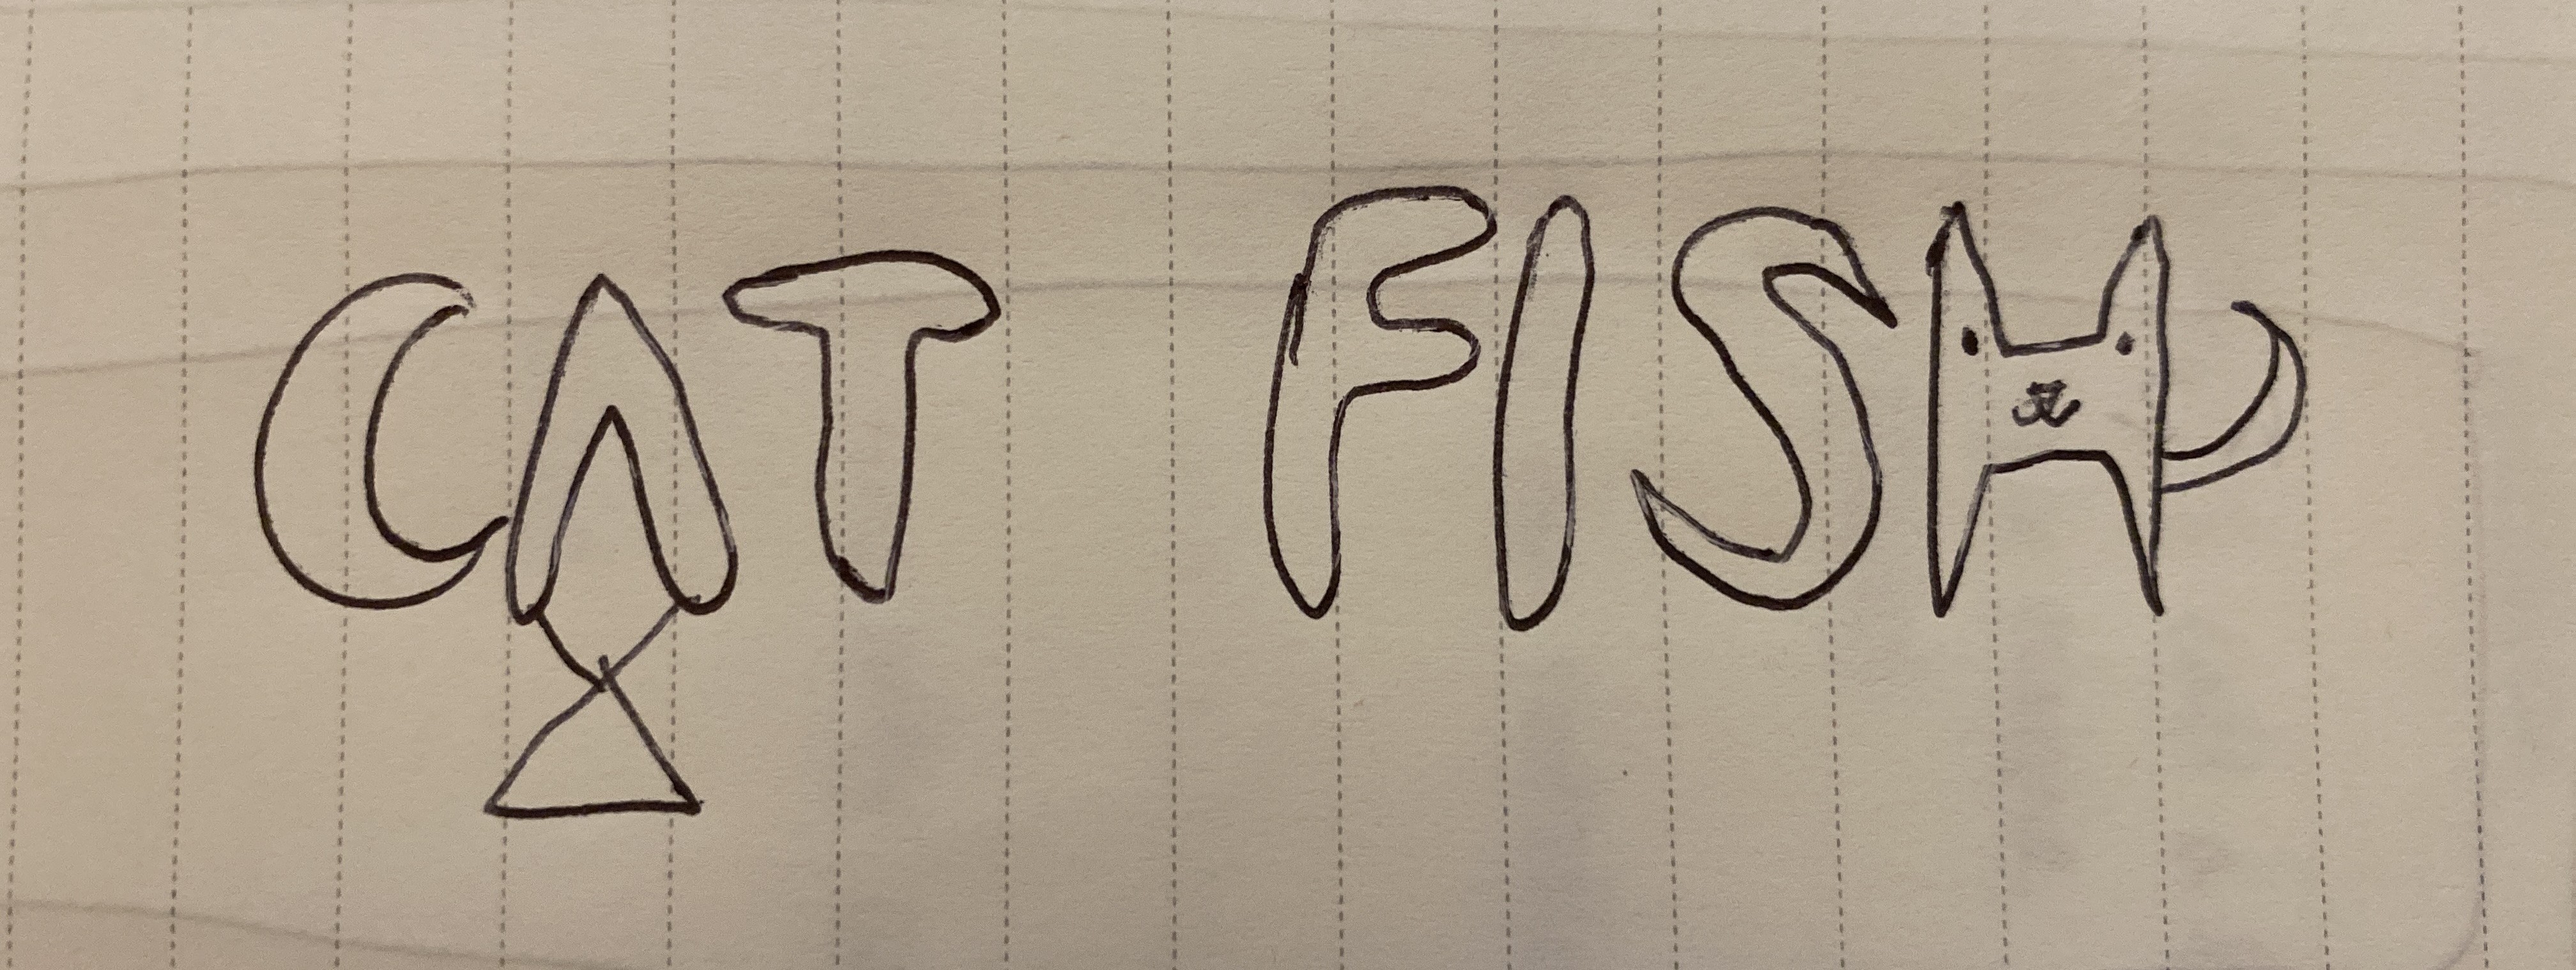 CAT FISH